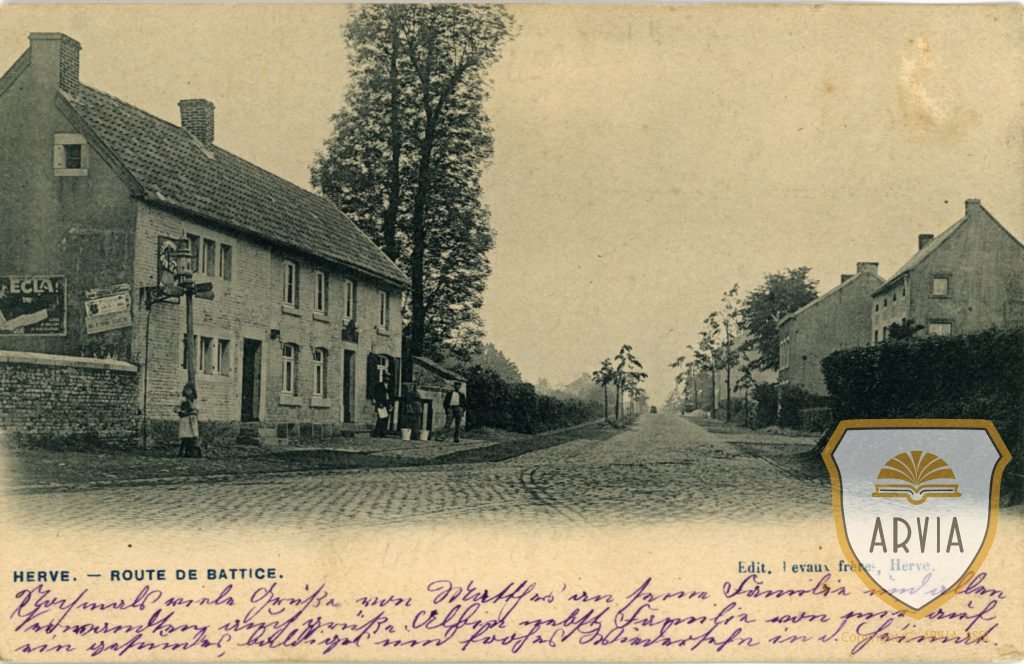 ECLA
HERVE. — ROUTE DE BATTICE.
Edit. Levaux frères, Herve.
ARVIA
Nochmals viele Grüße von Matthes an seine Familie und allen
Verwandten auch grüße Albin nebst Familie von mir auf
ein gesundes, baldiges und frohes Wiedersehn in d. Heimat.